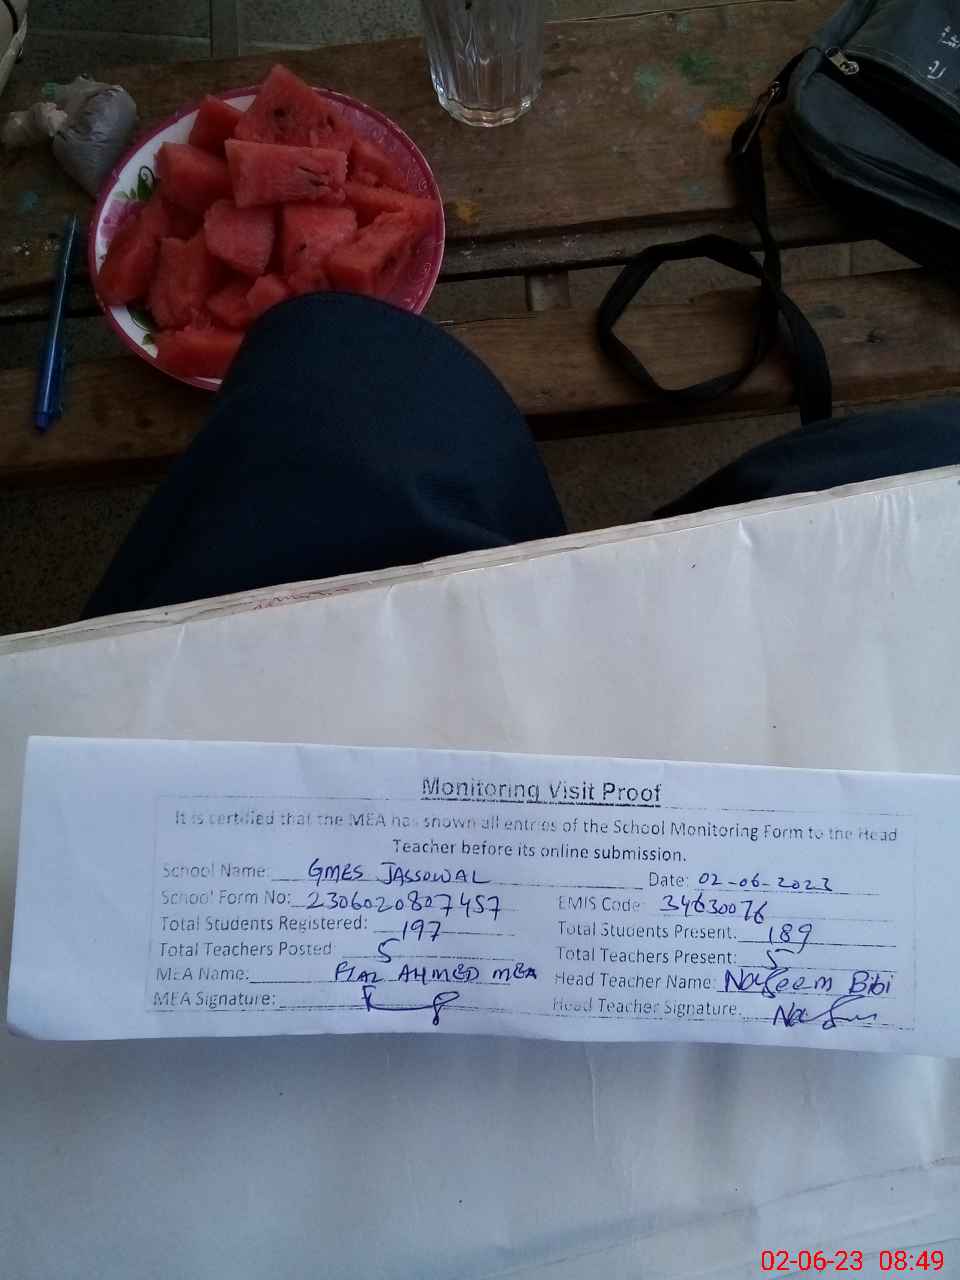 Monitoring Visit Proof
It is certified that the MEA has shown all entries of the School Monitoring Form to the Head
Teacher before its online submission.
School Name: GMES JASSOWAL Date: 02-06-2023
School Form No: 2306020807457 EMIS Code: 34630076
Total Students Registered: 197 Total Students Present: 189
Total Teachers Posted: 5 Total Teachers Present: 5
MEA Name: FIAZ AHMED MEA Head Teacher Name: Naseem Bibi
MEA Signature: Head Teacher Signature:
02-06-23 08:49